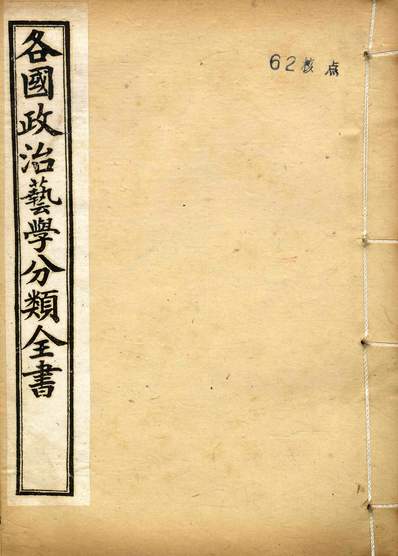 各國政治藝學分類全書
62敍点